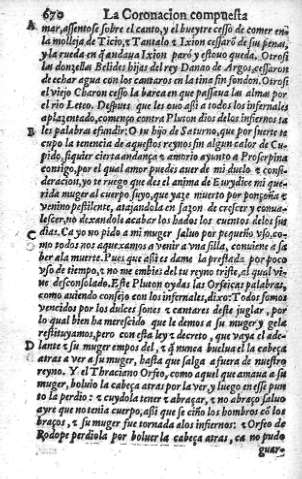 670 La Coronacion compuesta
A mar, assentose sobre el canto, y el bueytre cessò de comer en
la molleja de Ticio, & Tantalo & Ixion cessarõ de su pena,
y la rueda en q̃ andaua Ixion parò y estouo queda. Otrosi
las donzellas Belides hijas del rey Danao de Argos, cessaron
de echar agua con los cantaros en la tina sin fondon. Otrosi
el viejo Charon cesso la barca en que passaua las almas por
el rio Leteo. Despues que les ouo assi a todos los infernales
aplazentado, començo contra Pluton dios delos infiernos ta
B les palabras efundir: O tu hijo de Saturno, que por suerte te
cupo la tenencia de aquestos reynos sin algun calor de Cu-
pido, siquier cierta andança & amorio ayunto a Proserpina
contigo, por el qual amor puedes auer de mi duelo & consi-
deracion, yo te ruego que des el anima de Eurydice mi que-
rida muger al cuerpo suyo, que yaze muerto por ponçoña &
venino pestilente, atajandola en sazon de crescer y conua-
lescer, no dexandole acabar los hados los cuentos delos sus
C dias. Ca yo no pido a mi muger saluo por pequeño vso, co-
mo todos nos aquexamos a venir a vna silla, conuiene a sa
ber ala muerte. Pues que assi es dame la prestada por poco
vso de tiempo, & no me embies del tu reyno triste, al qual vi-
ue desconsolado. Este Pluton oydas las Orfeicas palabras,
como auiendo consejo con los infernales, dixo: Todos somos
vencidos por los dulces sones & cantares deste juglar, por
lo qual bien ha merescido que le demos a su muger y gela
restituyamos, pero con esta ley & decreto, que vaya el ade-
D lante & su muger empos del, & q̃ nunca buelua el la cabeça
atras a ver a su muger, hasta que salga a fuera de nuestro
reyno. Y el Thraciano Orfeo, como aquel que amaua a su
muger, boluio la cabeça atras por la ver, y luego en esse pun
to la perdio: & cuydola tener & abraçar, & no abraço saluo
ayre que no tenia cuerpo, assi que se ciño los hombros cõ los
braços, & su muger fue tornada alos infiernos: & Orfeo de
Rodope perdiola por boluer la cabeça atras, ca no pudo
guar-